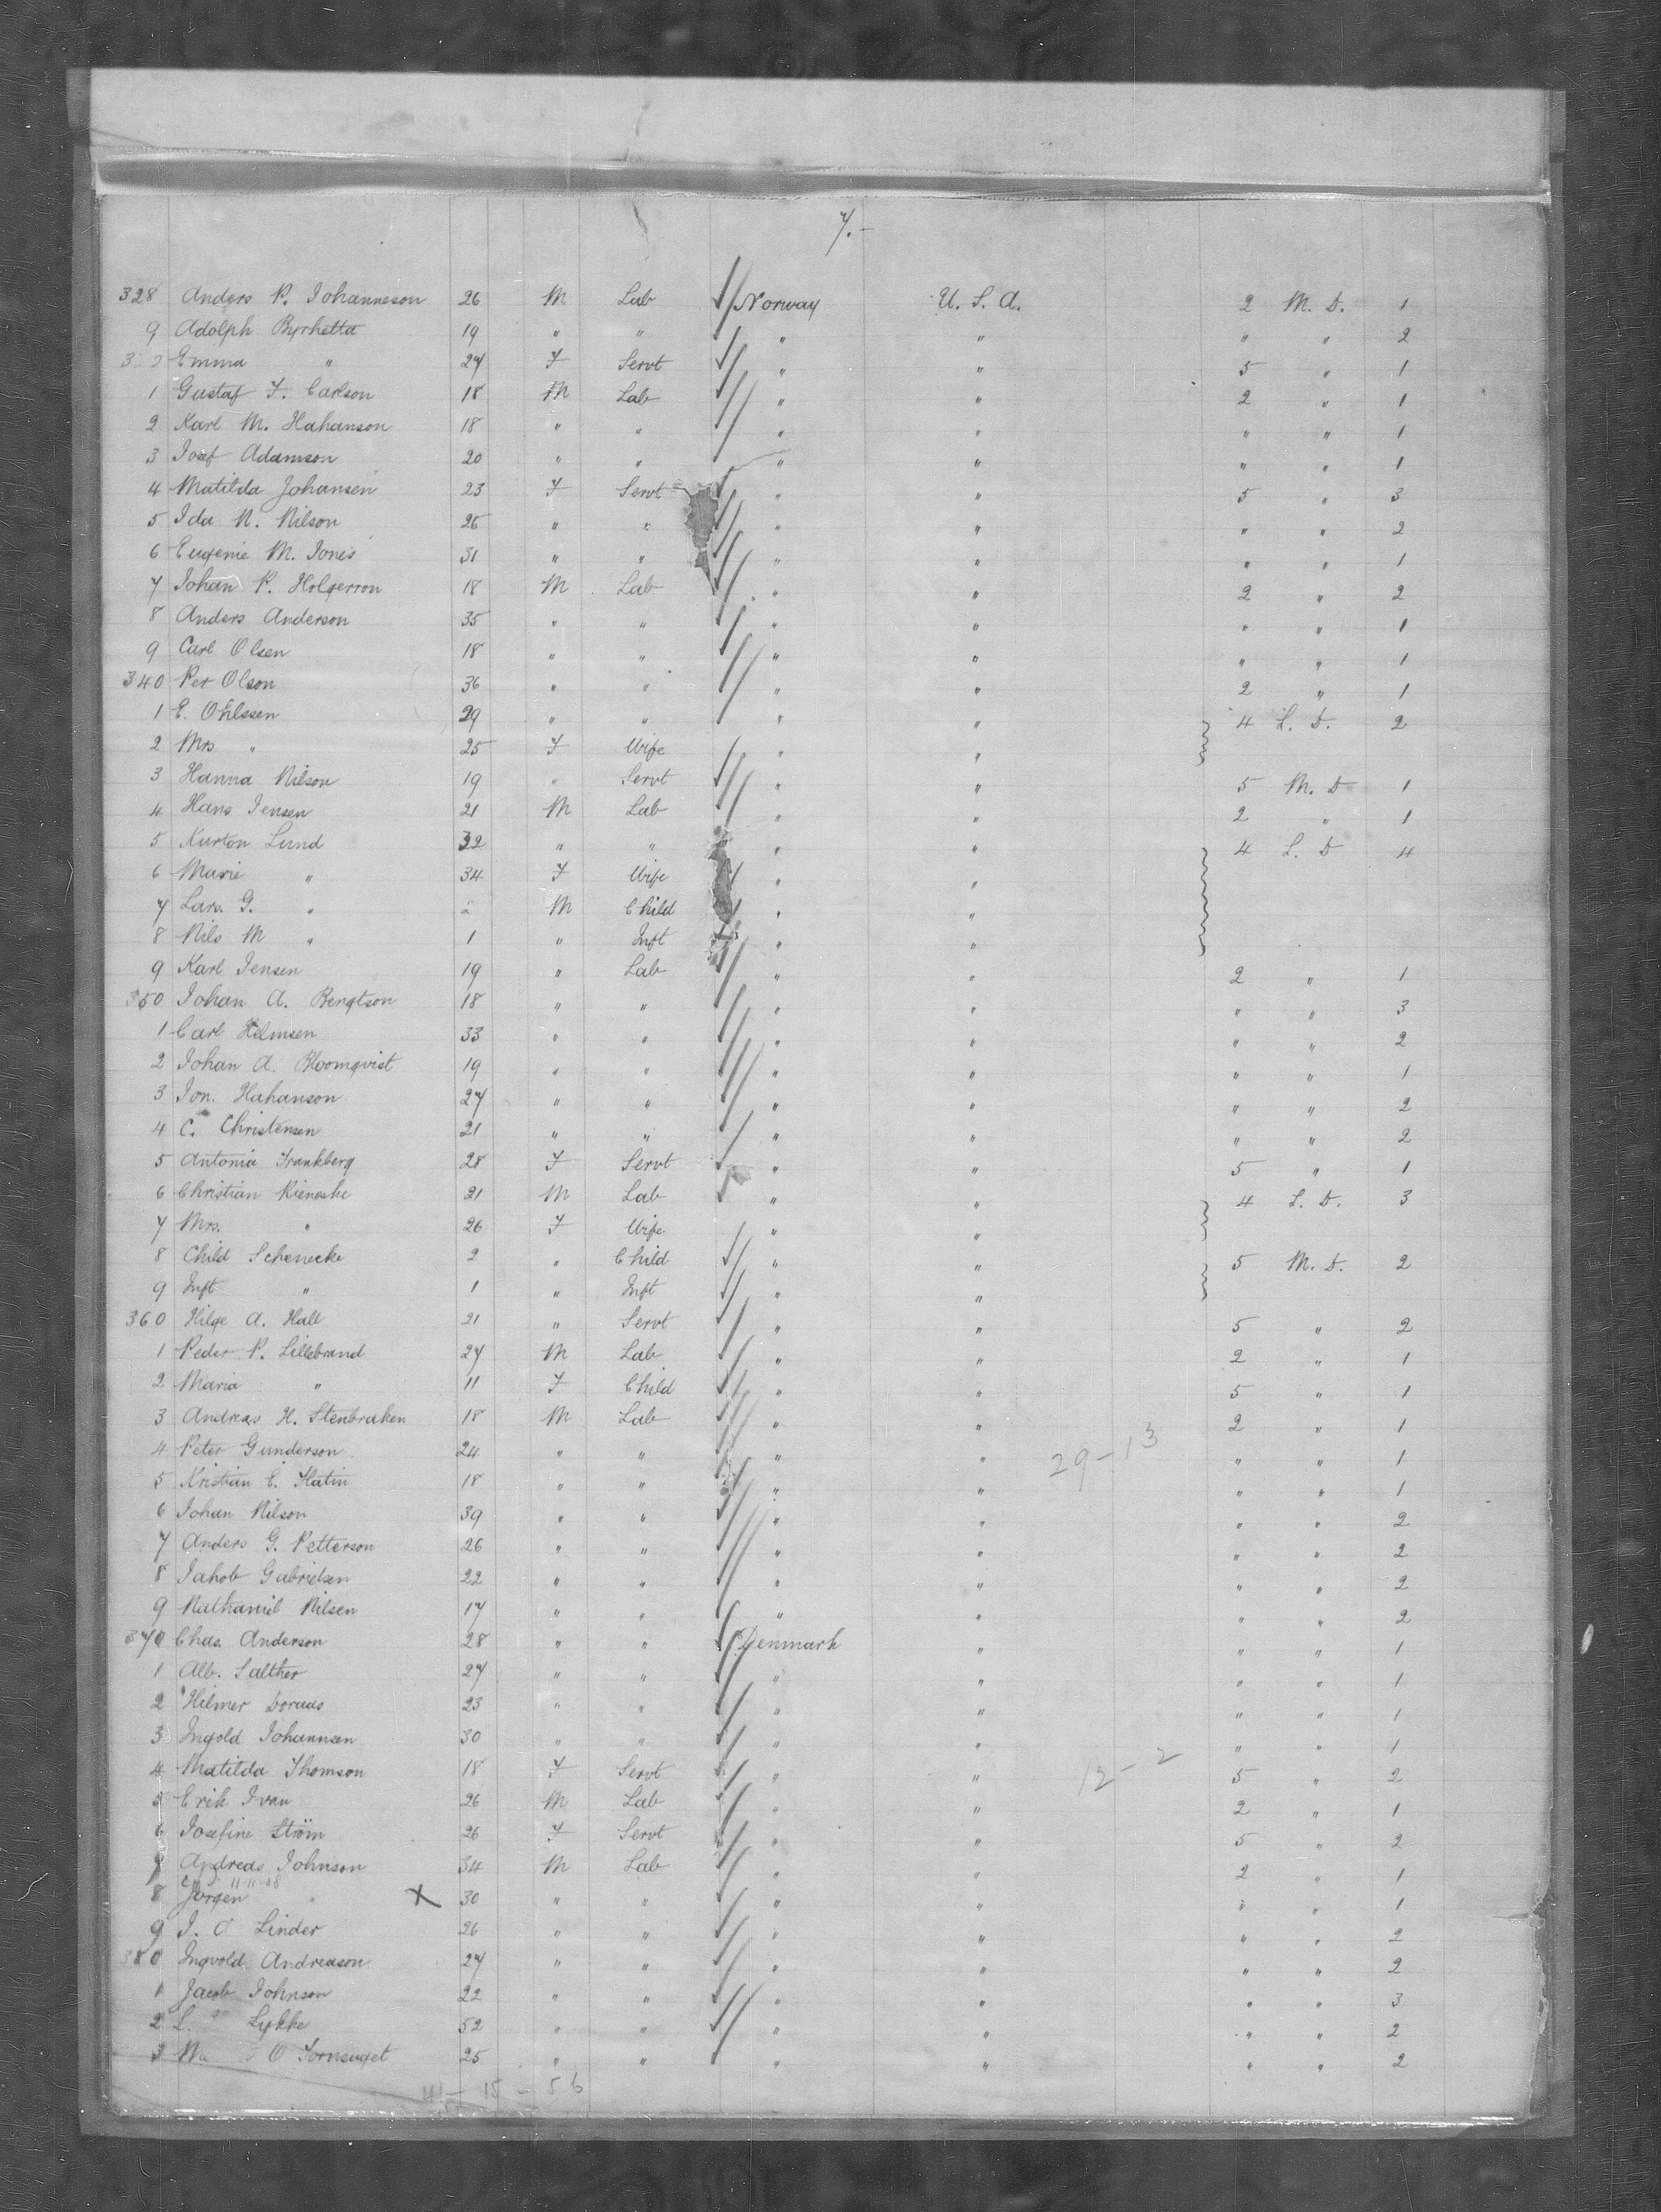 7.-
328 Anders P. Johanneson 26 M Lab Norway U. S. A. 2 M. D. 1
9 Adolph Byrhetta 19 " " " " " " 2
3 0 Emma " 24 F Servt " " 5 " 1
1 Gustaf F. Carlson 18 M Lab " " 2 " 1
2 Karl M. Hahanson 18 " " " " " " 1
3 Josef Adamson 20 " " " " " " 1
4 Matilda Johansen 23 F Servt " " 5 " 3
5 Ida N. Nilson 25 " " " " " " 2
6 Eugenie M. Jones 31 " " " " " " 1
7 Johan P. Holgerron 18 M Lab " " 2 " 2
8 Anders Anderson 35 " " " " " " 1
9 Carl Olsen 18 " " " " " " 1
340 Per Olson 36 " " " " 2 " 1
1 E. Ohlssen 29 " " " " 4 L. D. 2
2 Mrs " 25 F Wife " "
3 Hanna Nilson 19 " Servt " " 5 M. D 1
4 Hans Jensen 21 M Lab " " 2 " 1
5 Kurton Lund 32 " " " " 4 L. D 4
6 Marie " 34 F Wife " "
7 Lars. G. " 2 M Child " "
8 Nils M " 1 " Inft " "
9 Karl Jensen 19 " Lab " " 2 " 1
350 Johan A. Bengtson 18 " " " " " " 3
1 Carl Helmsen 33 " " " " " " 2
2 Johan A. Bloomqvist 19 " " " " " " 1
3 Jon. Hahanson 27 " " " " " " 2
4 C. Christensen 21 " " " " " " 2
5 Antonia Frankberg 28 F Servt " " 5 " 1
6 Christian Rieneske 21 M Lab " " 4 L. D. 3
7 Mrs. " 26 F Wife " "
8 Child Schenecke 2 " Child " " 5 M. D. 2
9 Inft " 1 " Inft " "
360 Hilge A. Hall 21 " Servt " " 5 " 2
1 Peder P. Lillebrand 24 M Lab " " 2 " 1
2 Maria " 11 F Child " " 5 " 1
3 Andreas H. Stenbraken 18 M Lab " " 2 " 1
4 Peter Gunderson 24 " " " " 29-13 " " 1
5 Kristian E. Hatin 18 " " " " " " 1
6 Johan Nilson 39 " " " " " " 2
7 Anders G. Petterson 26 " " " " " " 2
8 Jakob Gabrielsen 22 " " " " " " 2
9 Nathaniel Nilsen 17 " " " " " " 2
370 Chas. Anderson 28 " " Denmark " " " 1
1 Alb. Salther 27 " " " " " " 1
2 Hilmer Doruds 23 " " " " " " 1
3 Ingold Johannsen 30 " " " " " " 1
4 Matilda Thomson 18 F Servt " " 12-2 5 " 2
5 Erik Ivan 26 M Lab " " 2 " 1
6 Josefine Ström 26 F Servt " " 5 " 2
7 Andreas Johnson 34 M Lab " " 2 " 1
11-11-08
8 Jorgen " X 30 " " " " " " 1
9 J. O Linder 26 " " " " " " 2
380 Ingvold Andreason 27 " " " " " " 2
1 Jacob Johnson 22 " " " " " " 3
2 L. Lykke 52 " " " " " " 2
3 O Tornseuget 25 " " " " " " 2
41-15-56